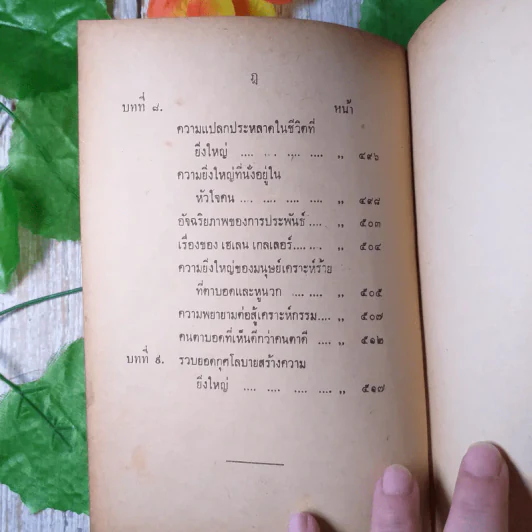 ฎ
บทที่ ๘. หน้า
ความแปลกประหลาดในชีวิตที่
ยิ่งใหญ่ .... .... .... .... ,, ๔๙๖
ความยิ่งใหญ่ที่นั่งอยู่ใน
หัวใจคน .... .... .... .... ,, ๔๙๘
อัจฉริยภาพของการประพันธ์ .... ,, ๕๐๓
เรื่องของ เฮเลน เกลเลอร์ .... .... ,, ๕๐๔
ความยิ่งใหญ่ของมนุษย์เคราะห์ร้าย
ที่ตาบอดและหูหนวก .... .... ,, ๕๐๕
ความพยายามต่อสู้เคราะห์กรรม .... ,, ๕๐๗
คนตาบอดที่เห็นดีกว่าคนตาดี .... ,, ๕๑๒
บทที่ ๙. รวบยอดกุศโลบายสร้างความ
ยิ่งใหญ่ .... .... .... .... ,, ๕๑๗